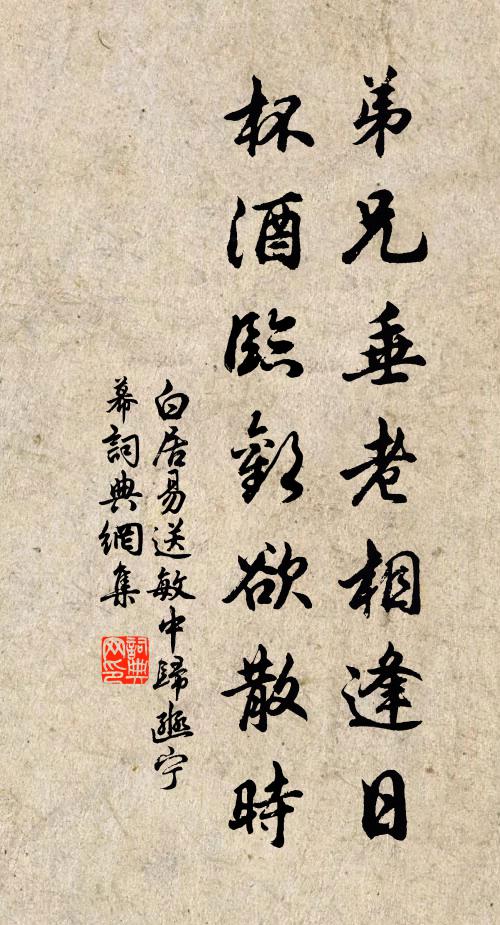 弟兄垂老相逢日
杯酒臨歡欲散時
白居易送敏中歸豳宁
幕詞典網集
詞典
网印